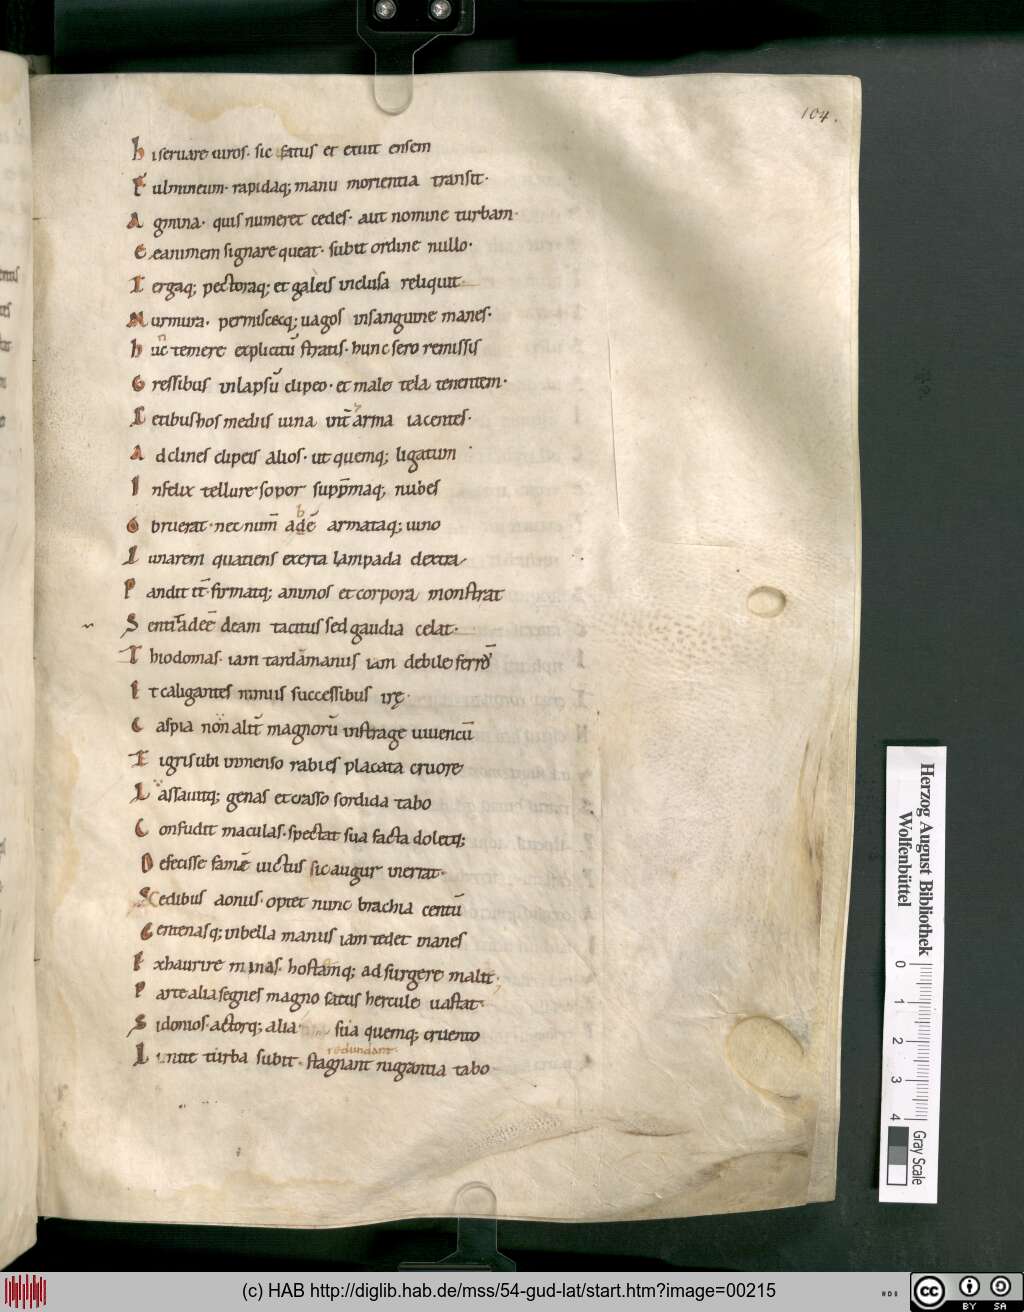 104.
h iseruare uiros. sic fatus et exuit ensem
F ulmineum. rapidaq; manu morientia transit.
A gmina. quis numeret cedes. aut nomine turbam.
E exanimem signare queat. subit ordine nullo.
T ergaq; pectoraq; et galeis inclusa reliquit.
M urmura. permiscetq; uagos insanguine manes.
h uc temere explicitū stratis. hunc sero remissis
G ressibus inlapsū clipeo. et male tela tenentem.
C etibus hos mediis uina int̄ arma iacentes.
A dclines clipeis alios. ut quemq; ligatum
I nfelix tellure sopor supp̄maq; nubes
O bruerat. nec num̄ adeē armataq; iuno
L unarem quatiens exerta lampada dextra
P andit it̄. firmatq; animos et corpora monstrat
S entit adeē deam tacitus sed gaudia celat.
T hiodomas. iam tarda manus iam debile ferrū
E t caligantes nimiis successibus irę.
C aspia non alit̄ magnorū instrage iuuencū
T igris ubi inmenso rabies placata cruore
L assauitq; genas et crasso sordida tabo
C onfudit maculas. spectat sua facta doletq;
D efecisse famē uictus sic augur inerrat.
S cedibus aonus. optet nunc brachia centū
C entenasq; inbella manus iam tedet inanes
E xhaurire minas. hostemq; adsurgere malit.
P arte alia segnes magno satus hercule uastat.
S idonios. actorq; alia sua quemq; cruento
redundant.
L imite turba subit. stagnant nigrantia tabo
Herzog August Bibliothek
Wolfenbüttel
0 1 2 3 4
Gray Scale
(c) HAB http://diglib.hab.de/mss/54-gud-lat/start.htm?image=00215
HAB
cc BY SA